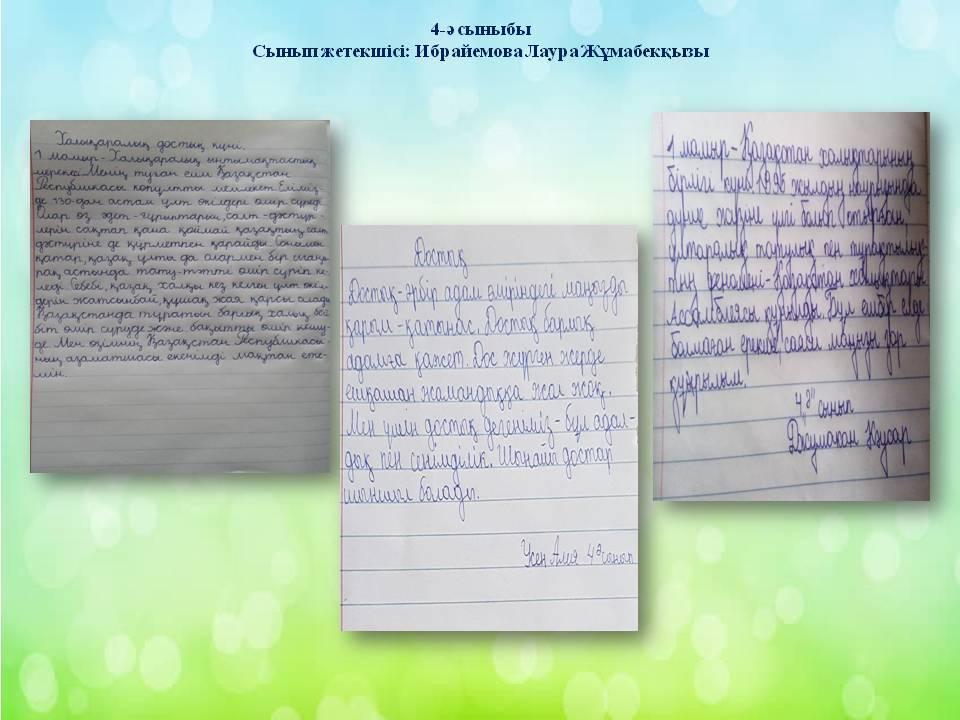 4-ә сыныбы
Сынып жетекшісі: Ибрайемова Лаура Жұмабекқызы
Халықаралық достық күні.
1 мамыр - Халықаралық ынтымақтастық
мерекесі. Менің туған елім Қазақстан
Республикасы көпұлтты мемлекет. Еліміз-
де 130-дан астам ұлт өкілдері өмір сүреді.
Олар өз әдет-ғұрыптарын, салт-дәстүр-
лерін сақтап қана қоймай қазақтың салт
дәстүріне де құрметпен қарайды. Сонымен
қатар, қазақ ұлты да олармен бір шаңы-
рақ астында тату-тәтті өмір сүріп ке-
леді. Себебі, қазақ халқы кез келген ұлт өкіл-
дерін жатсынбай, құшақ жая қарсы алады.
Қазақстанда тұратын барлық халық бей-
біт өмір сүруде және бақытты өмір кешу-
де. Мен өзімнің Қазақстан Республикасы-
ның азаматшасы екенімді мақтан ете-
мін.
Достық
Достық-әрбір адам өміріндегі маңызды
қарым-қатынас. Достық барлық
адамға қажет. Дос жүрген жерде
ешқашан жамандыққа жол жоқ.
Мен үшін достық дегеніміз-бұл адал-
дық пен сенімділік. Шынайы достар
шыншыл болады.
Үсен Алия 4ә сынып
1 мамыр-Қазақстан халықтарының
бірлігі күні. 1995 жылдың наурызында
дүние жүзіне үлгі болып отырған,
ұлтаралық татулық пен тұрақтылық-
тың феномені-Қазақстан халықтары
Ассамблеясы құрылды. Бұл ешбір елде
болмаған ерекше, саяси маңызы зор
құрылым.
4 "ә" сынып
Джумахан Кәусар